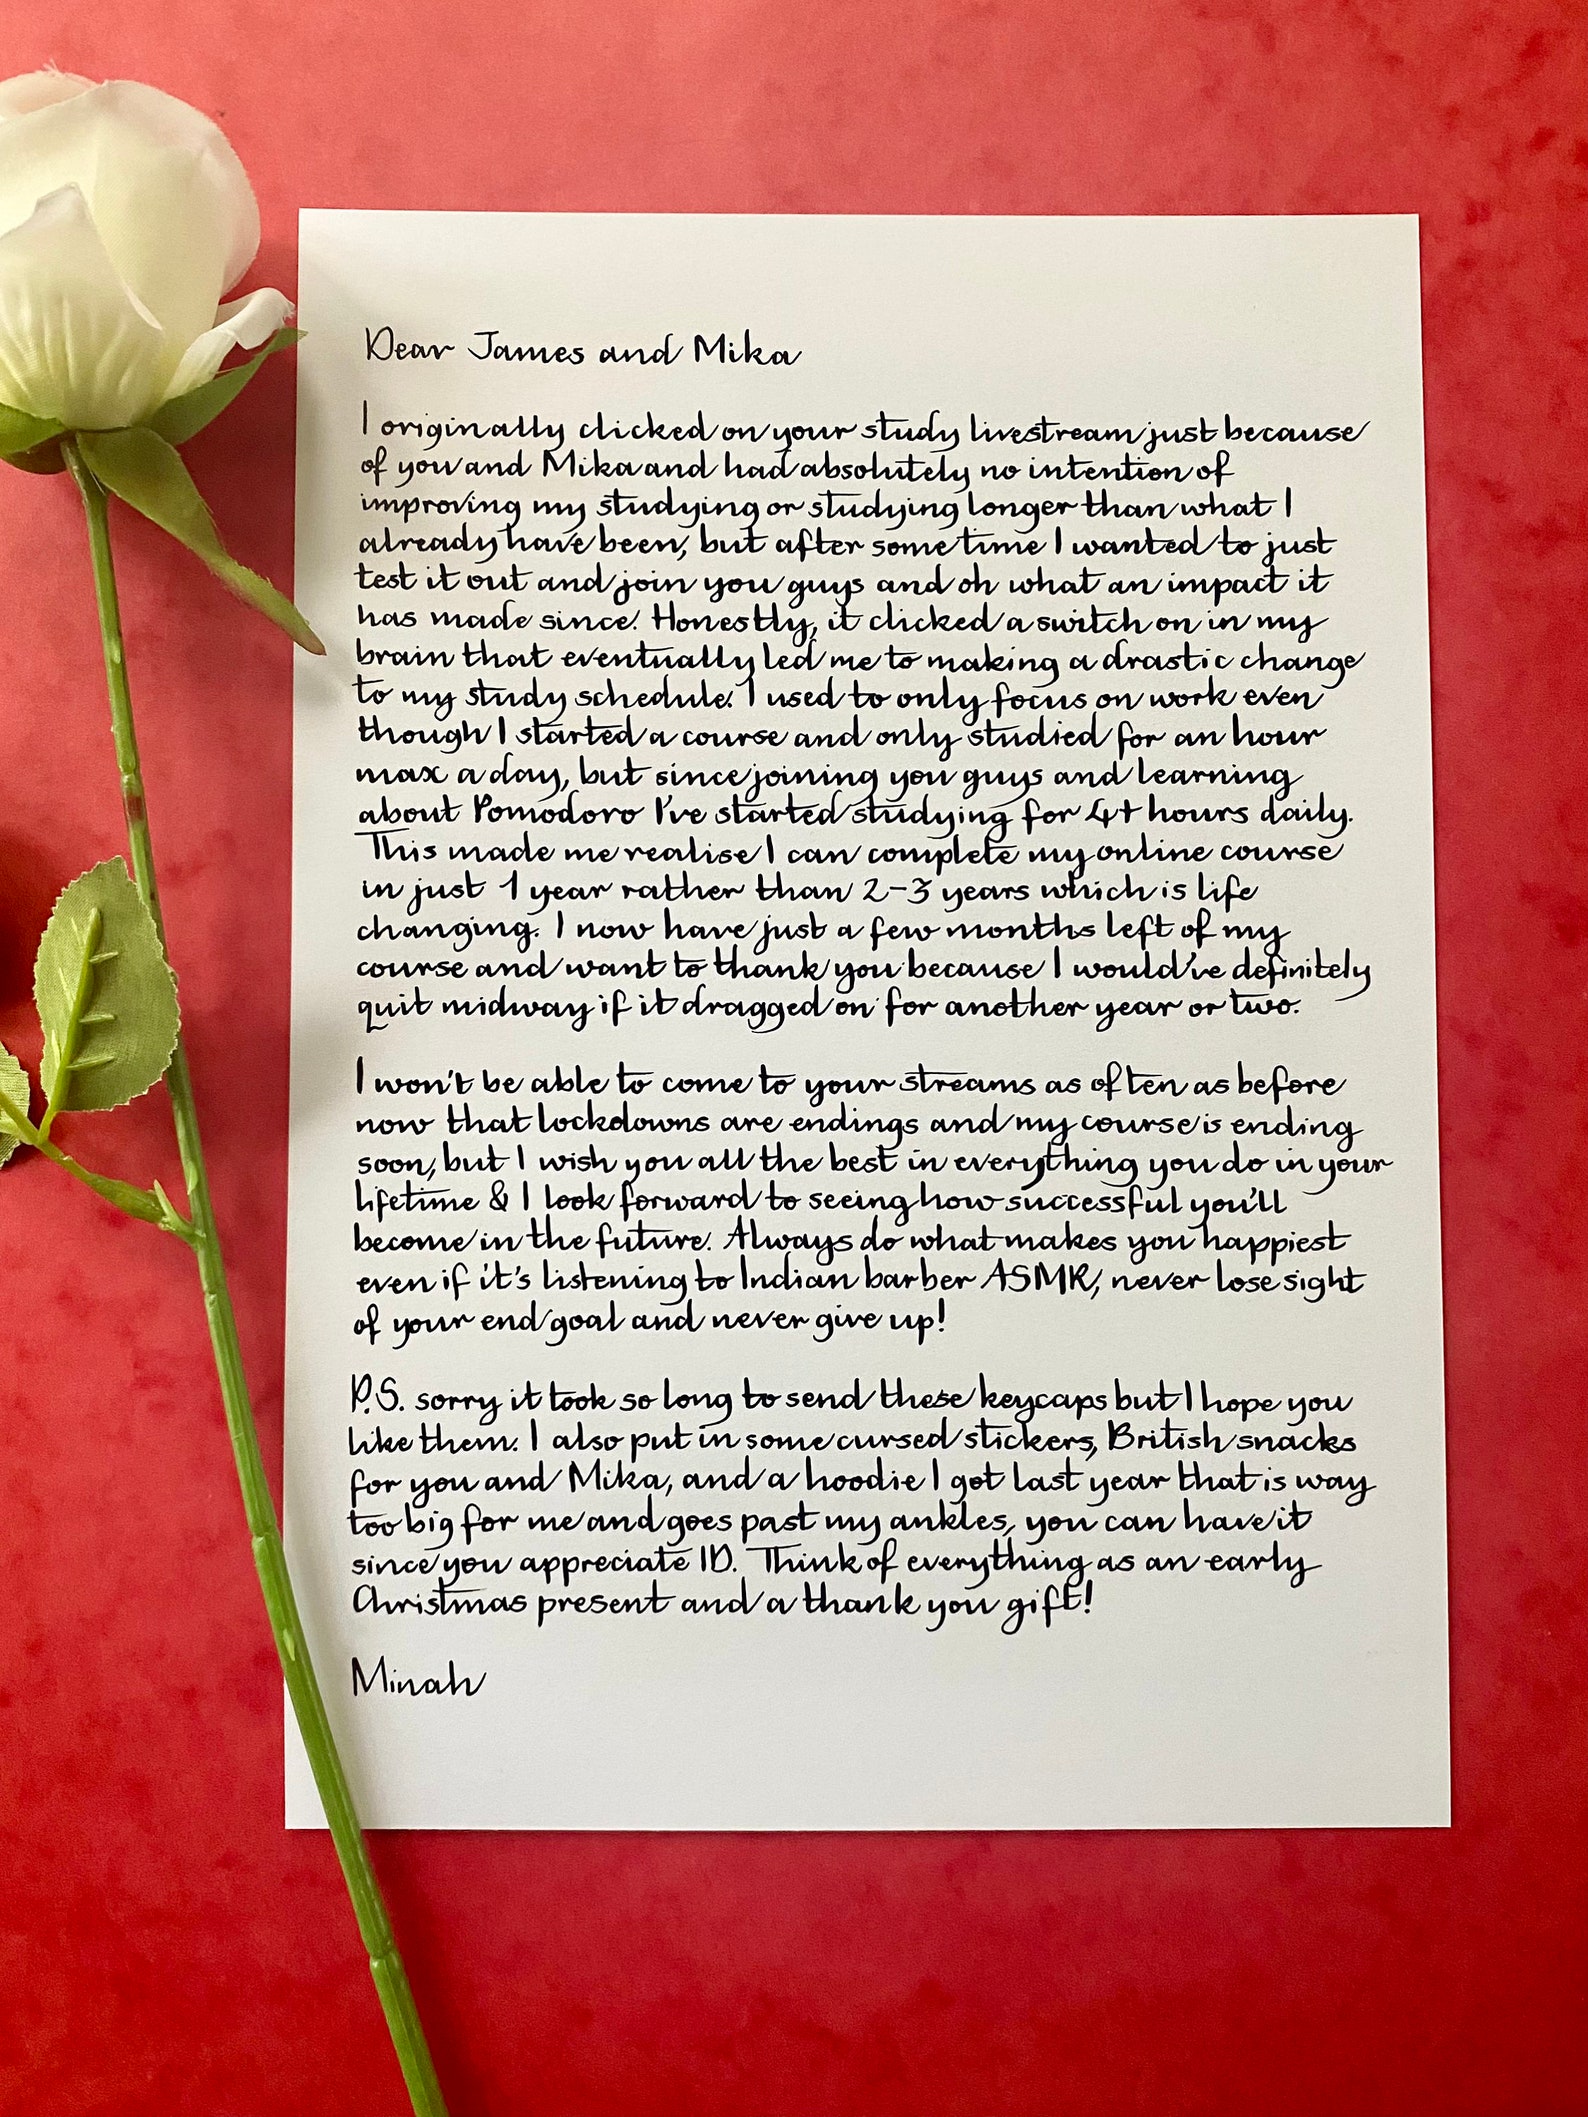 Dear James and Mika
I originally clicked on your study livestream just because
of you and Mika and had absolutely no intention of
improving my studying or studying longer than what I
already have been, but after some time I wanted to just
test it out and join you guys and oh what an impact it
has made since. Honestly, it clicked a switch on in my
brain that eventually led me to making a drastic change
to my study schedule. I used to only focus on work even
though I started a course and only studied for an hour
max a day, but since joining you guys and learning
about Pomodoro I've started studying for 4+ hours daily.
This made me realise I can complete my online course
in just 1 year rather than 2-3 years which is life
changing. I now have just a few months left of my
course and want to thank you because I would've definitely
quit midway if it dragged on for another year or two.
I won't be able to come to your streams as often as before
now that lockdowns are endings and my course is ending
soon, but I wish you all the best in everything you do in your
lifetime & I look forward to seeing how successful you'll
become in the future. Always do what makes you happiest
even if it's listening to Indian barber ASMR, never lose sight
of your end goal and never give up!
P.S. sorry it took so long to send these keycaps but I hope you
like them. I also put in some cursed stickers, British snacks
for you and Mika, and a hoodie I got last year that is way
too big for me and goes past my ankles, you can have it
since you appreciate 1D. Think of everything as an early
Christmas present and a thank you gift!
Minah